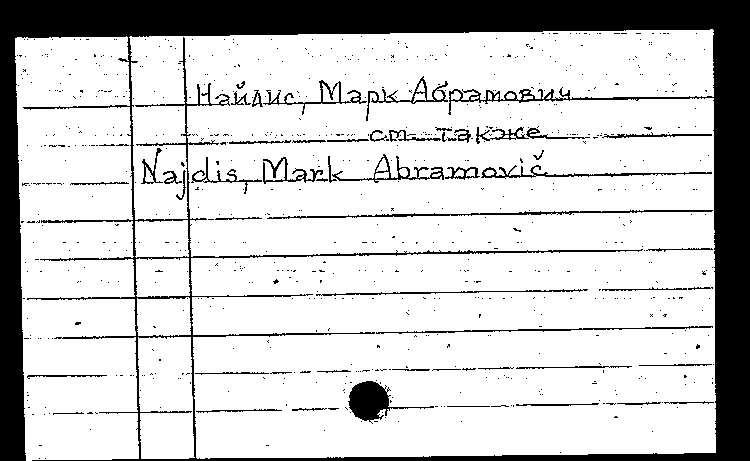 Найдис, Марк Абрамович
см. также
Najdis, Mark Abramovič